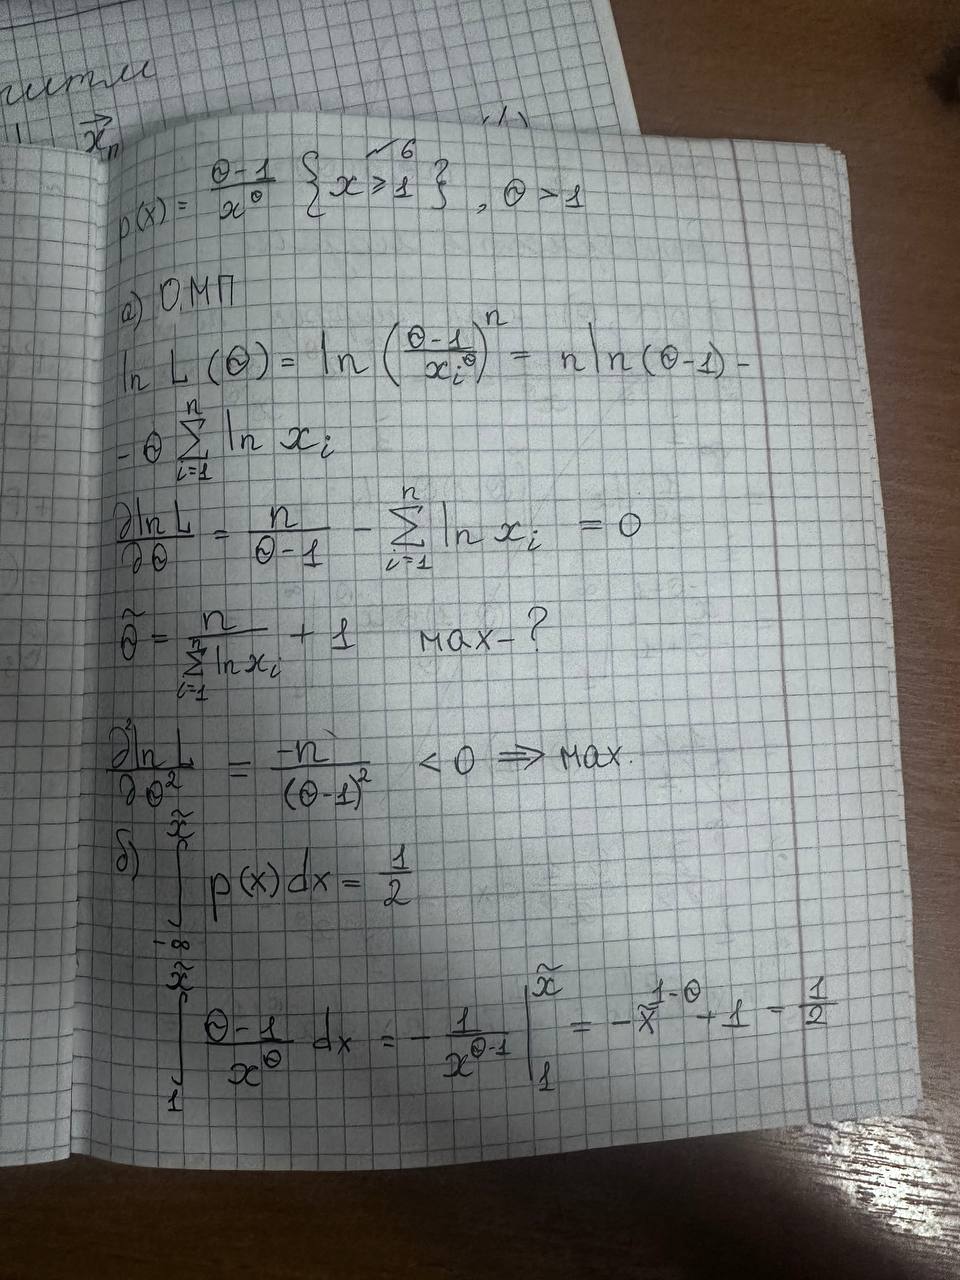 x⃗ₙ
p(x) = (θ-1)/x^θ {x ≥ 1}, θ > 1
6
а) ОМП
ln L(θ) = ln((θ-1)/xᵢ^θ)ⁿ = n ln(θ-1) -
- θ Σ_{i=1}^{n} ln xᵢ
∂ln L/∂θ = n/(θ-1) - Σ_{i=1}^{n} ln xᵢ = 0
θ̃ = n/(Σ_{i=1}^{n} ln xᵢ) + 1 max-?
∂²ln L/∂θ² = -n/(θ-1)² < 0 ⇒ max.
б) ∫_{-∞}^{x̃} p(x)dx = 1/2
∫_{1}^{x̃} (θ-1)/x^θ dx = - 1/x^{θ-1} |_{1}^{x̃} = -x̃^{1-θ} + 1 = 1/2